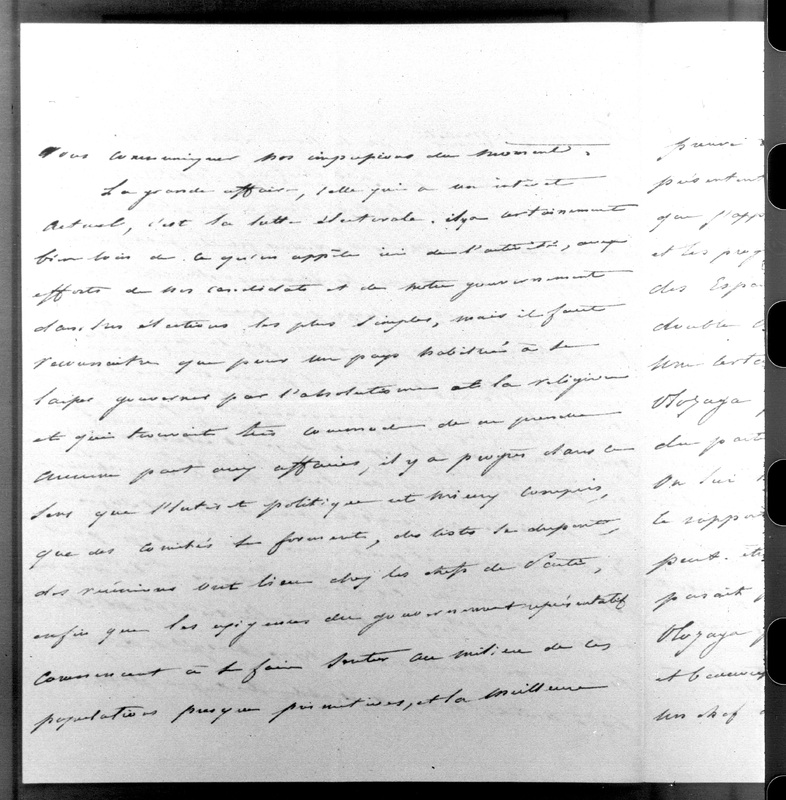 vous communiquer nos impressions du moment.
La grande affaire, celle qui a un intérêt
actuel, c'est la lutte électorale. il y a certainement
bien loin de ce qu'on appelle ici de l'activité, aux
efforts de nos candidats et de notre gouvernement
dans les élections les plus simples, mais il faut
reconnaitre que pour un pays habitué à se
laisser gouverner par l'absolutisme et la religion
et qui trouvait très commode de ne prendre
aucune part aux affaires, il y a progrès dans ce
sens que l'intérêt politique est mieux compris,
que des comités se forment, des listes se disputent,
des réunions ont lieu chez les chefs de Partis,
enfin que les exigences du gouvernement représentatif
commencent à se faire sentir au milieu de ces
populations presque primitives, et la meilleure
preuve
présentent
que j'app
et les prog
des Espa
double
une certa
Olozaga
du parti
On lui
le rapport
peut-êt
parait
Olozaga
et beaucoup
un chef